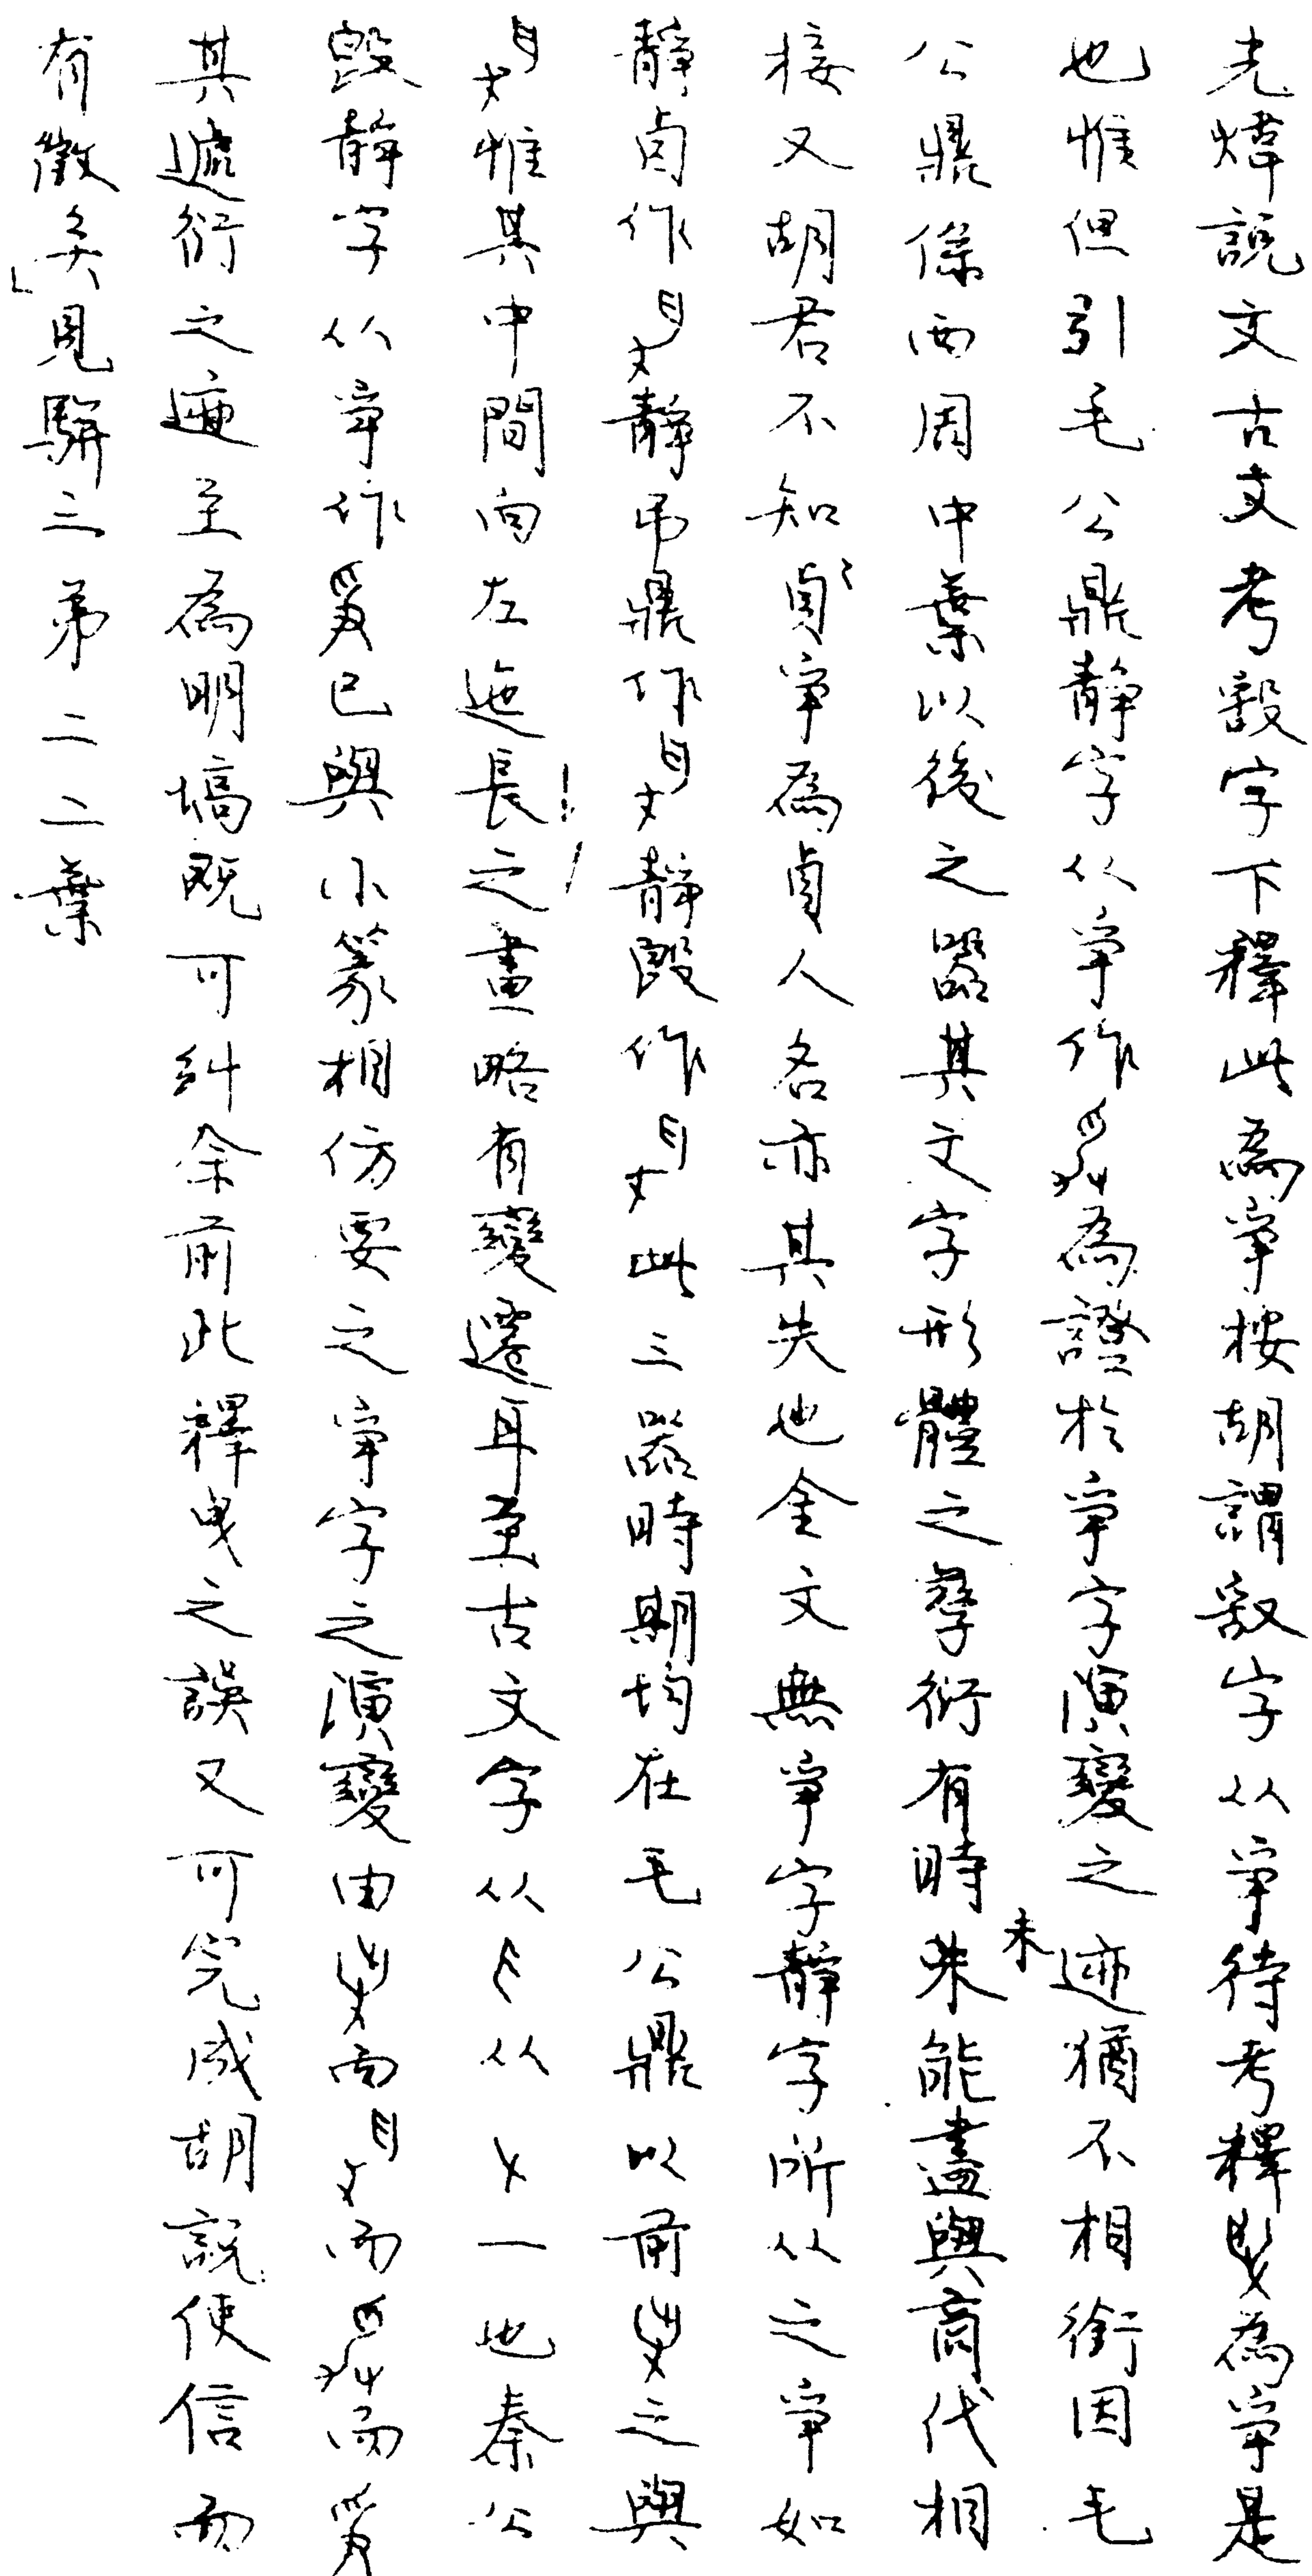 光煒說文古文考㝅字下釋此為爭按胡謂字从爭待考釋為爭是
也惟但引毛公鼎靜字从爭作為證於爭字演變之迹猶不相銜因毛
公鼎係西周中葉以後之器其文字形體之孳衍有時未能盡與商代相
接又胡君不知貞爭為貞人名亦其失也金文無爭字靜字所从之爭如
靜卣作靜弔鼎作靜𣪘作此三器時期均在毛公鼎以前之與
惟其中間向左迤長之畫略有變遷耳至古文字从从一也秦公
𣪘靜字从爭作已與小篆相仿要之爭字之演變由而而而
其遞衍之迹至為明塙既可糾余前此釋曳之誤又可究成胡說使信而
有徵矣」見駢三第二二葉